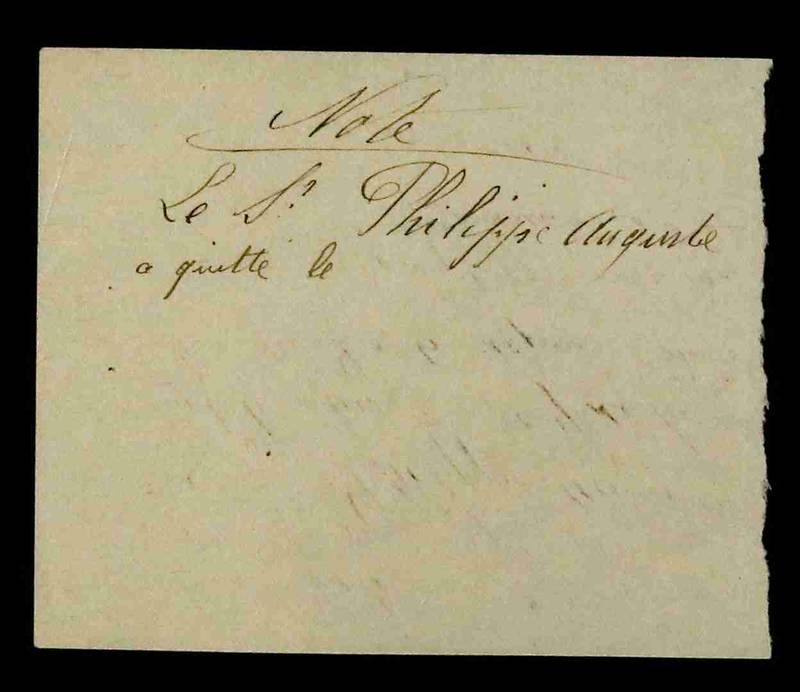 Note
Le Sr Philippe Auguste
a quitté le